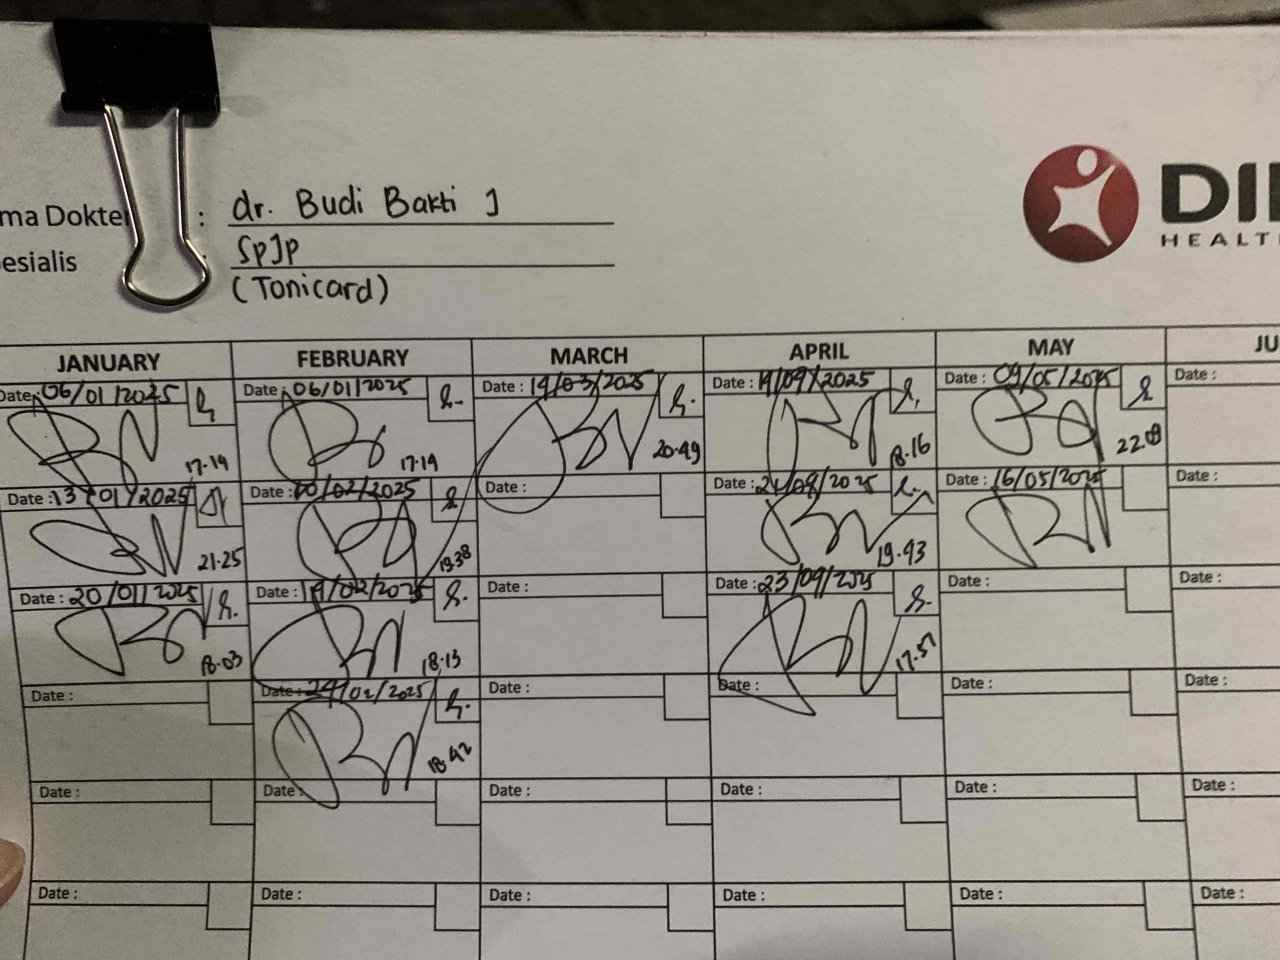 ma Dokter : dr. Budi Bakti J
esialis SpJp
(Tonicard)
DI
HEALT
JANUARY FEBRUARY MARCH APRIL MAY JU
Date: 06/01/2025 Date: 06/01/2025 Date: 14/03/2025 Date: /2025 Date: 09/05/2025 Date:
17.19 17.19 20.49 18.16 22.09
Date: 13/01/2025 Date: /02/2025 Date: Date: /2025 Date: 16/05/2025 Date:
21.25 19.38 19.43
Date: 20/01/2025 Date: /02/2025 Date: Date: 23/04/2025 Date: Date:
18.03 18.13 17.57
Date: Date: 24/02/2025 Date: Date: Date: Date:
18.42
Date: Date: Date: Date: Date: Date:
Date: Date: Date: Date: Date: Date: